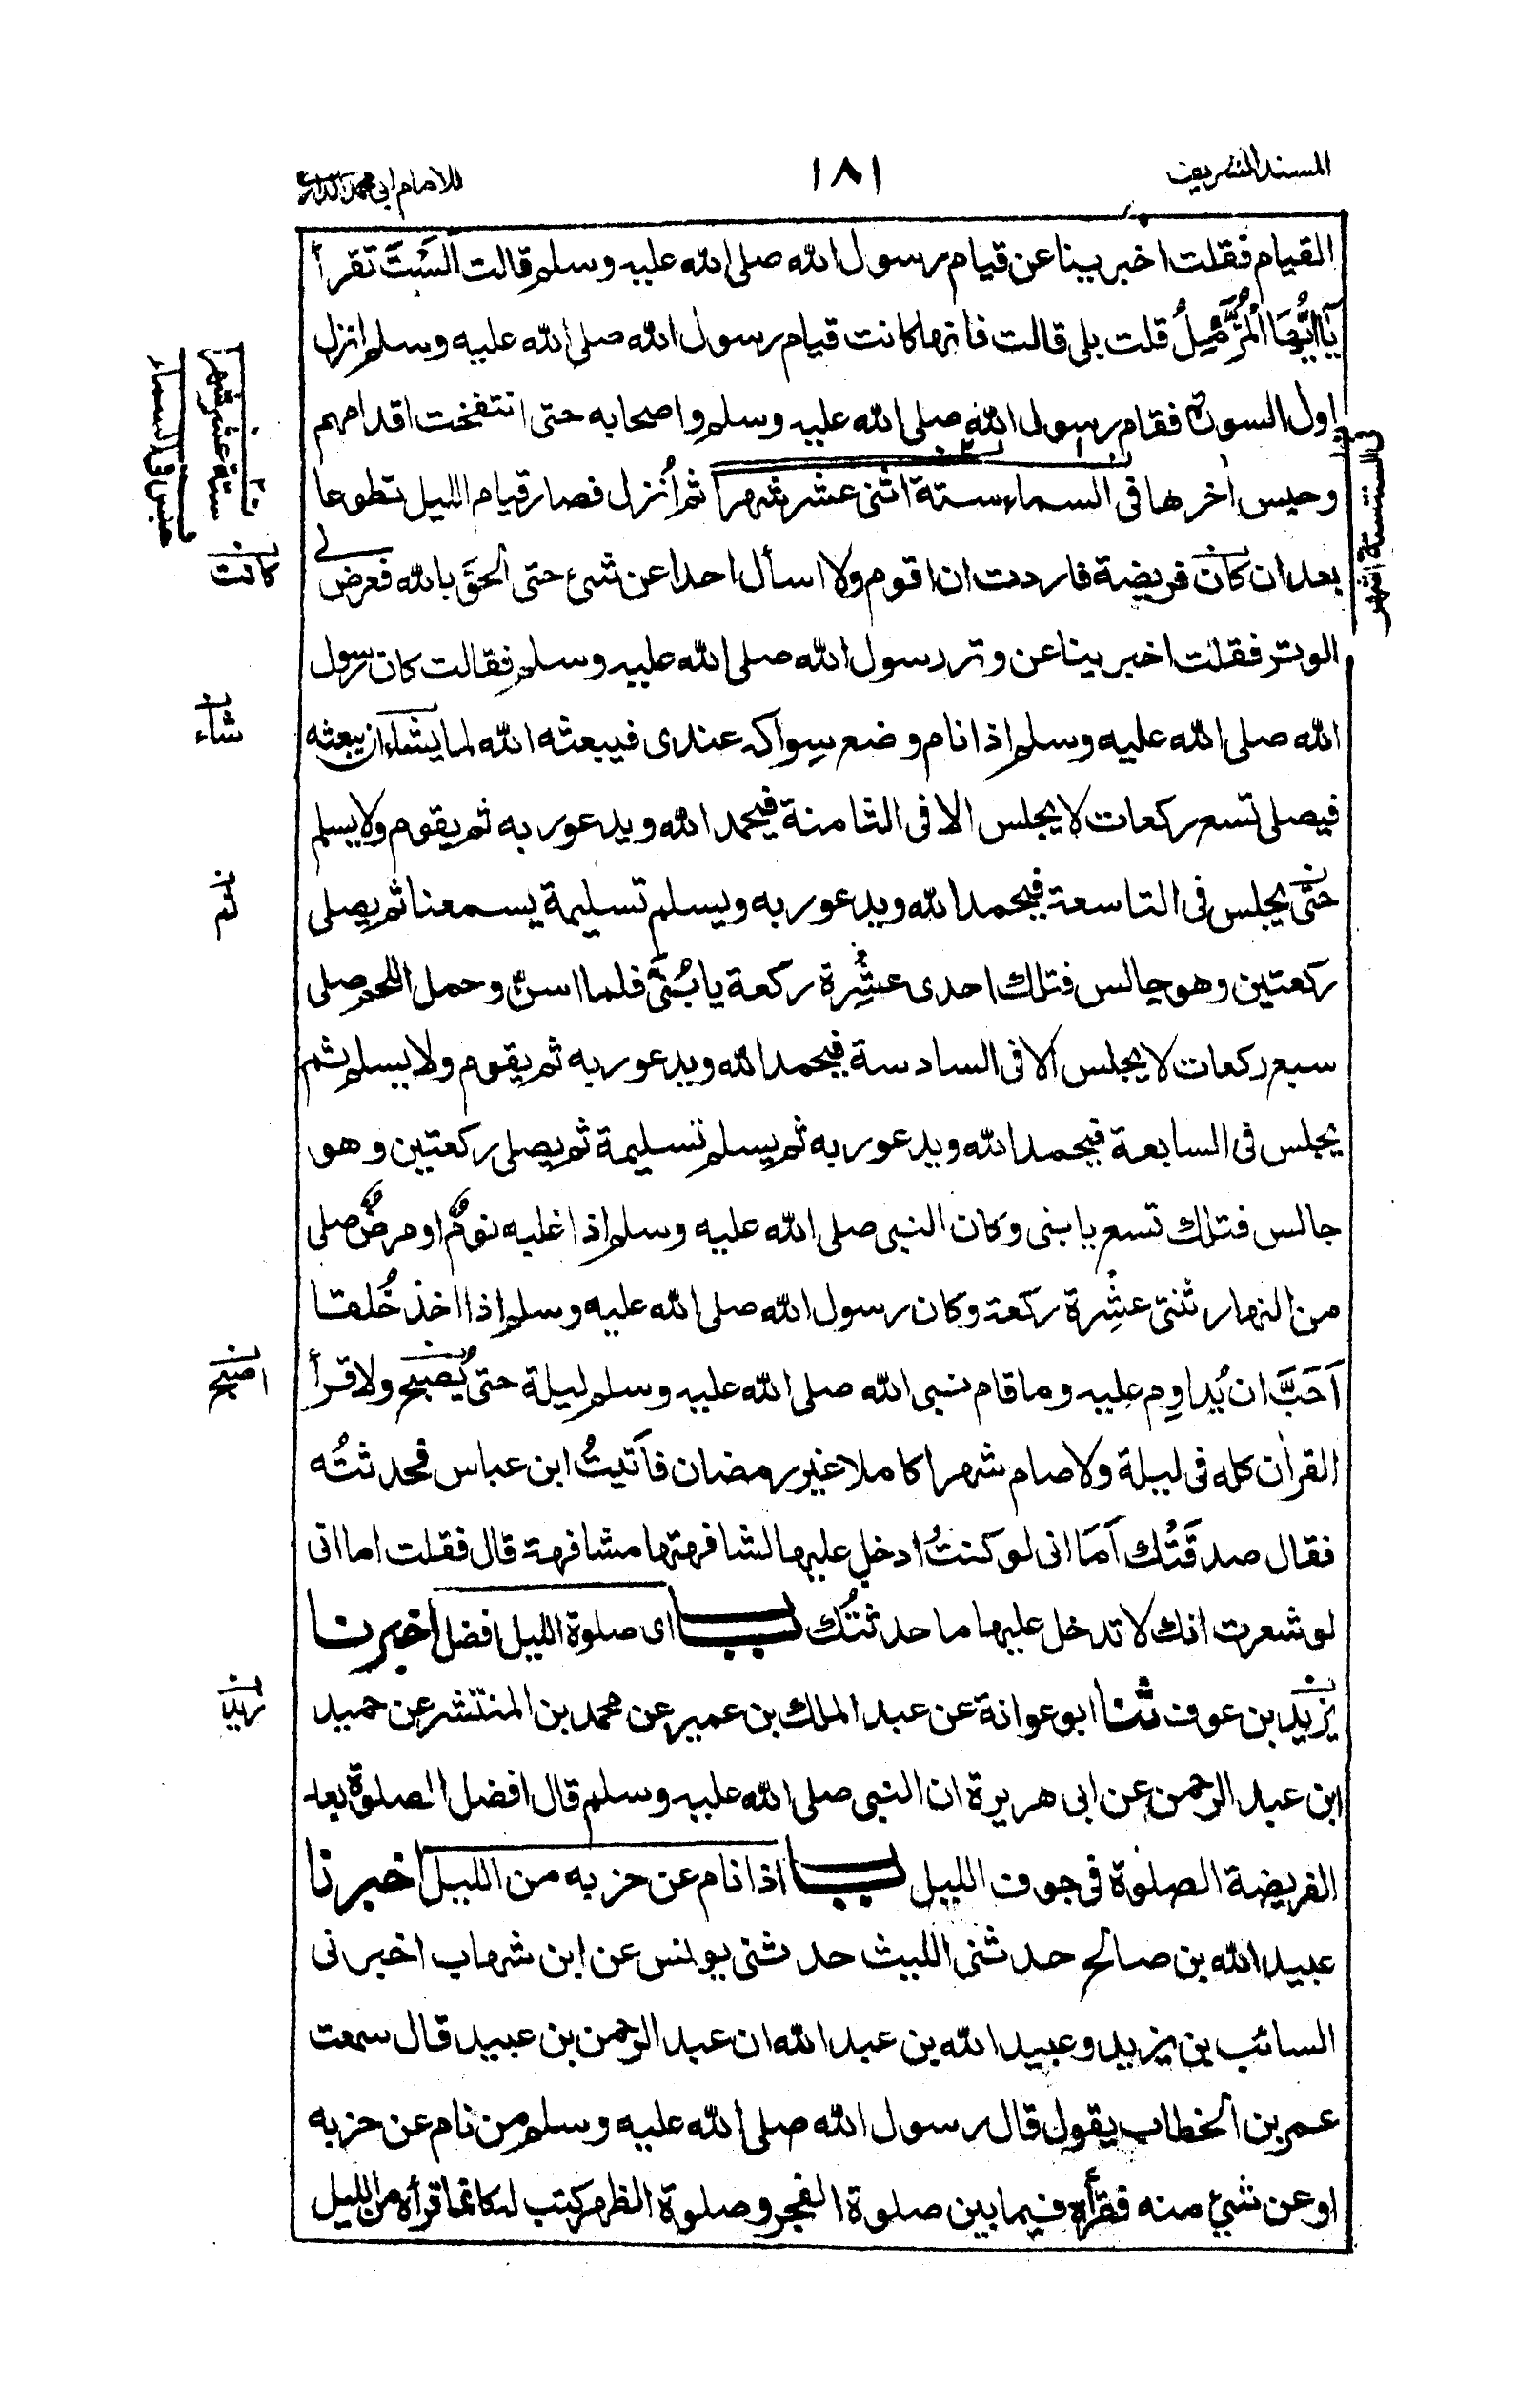 المسند الشريف
١٨١
للامام ابي محمد الدارمي
القيام فقلت اخبرينا عن قيام رسول الله صلى الله عليه وسلم قالت اَلَسْتَ تقرأ
يَا اَيُّهَا الْمُزَّمِّلُ قلت بلى قالت فانها كانت قيام رسول الله صلى الله عليه وسلم انزل
اول السورة فقام رسول الله صلى الله عليه وسلم واصحابه حتى انتفخت اقدامهم
وحبس اٰخرها فى السماء ستة اثنى عشر شهرا ثم اُنزل فصار قيام الليل تطوعا
بعد ان كان فريضة فاردت ان اقوم ولا اسأل احدا عن شىء حتى الحقَ بالله فعرض لى
الوتر فقلت اخبرينا عن وتر رسول الله صلى الله عليه وسلم فقالت كان رسول
الله صلى الله عليه وسلم اذا نام وضع سِواكه عندى فيبعثه الله لما يشاء ان يبعثه
فيصلى تسع ركعات لا يجلس الا فى الثامنة فيحمد الله ويدعو ربه ثم يقوم ولا يسلم
حتى يجلس فى التاسعة فيحمد الله ويدعو ربه ويسلم تسليمة يسمعنا ثم يصلى
ركعتين وهو جالس فتلك احدى عشْرِة ركعة يا بُنَىَّ فلما اسنّ وحمل اللحم صلى
سبع ركعات لا يجلس الا فى السادسة فيحمد الله ويدعو ربه ثم يقوم ولا يسلم ثم
يجلس فى السابعة فيحمد الله ويدعو ربه ثم يسلم تسليمة ثم يصلى ركعتين وهو
جالس فتلك تسع يا بنى وكان النبى صلى الله عليه وسلم اذا غلبه نومٌ او مرضٌ صلى
من النهار ثنتى عشْرِة ركعة وكان رسول الله صلى الله عليه وسلم اذا اخذ خُلقا
اَحَبَّ ان يُداوِم عليه وما قام نبى الله صلى الله عليه وسلم ليلة حتى يُصبح ولا قرأ
القرٰان كله فى ليلة ولا صام شهرا كاملا غير رمضان فاَتيتُ ابن عباس فحدثتُه
فقال صدقَتْك اَمَا انى لو كنتُ ادخل عليها لشافهتها مشافهة قال فقلت اما انى
لو شعرت انك لا تدخل عليها ما حدثتُك باب اى صلوة الليل افضل اخبرنا
يزيد بن عوف ثنا ابو عوانة عن عبد الملك بن عمير عن محمد بن المنتشر عن حميد
ابن عبد الرحمن عن ابى هريرة ان النبى صلى الله عليه وسلم قال افضل الصلوة بعد
الفريضة الصلوة فى جوف الليل باب اذا نام عن حزبه من الليل اخبرنا
عبيد الله بن صالح حدثنى الليث حدثنى يونس عن ابن شهاب اخبرنى
السائب بن يزيد وعبيد الله بن عبد الله ان عبد الرحمن بن عبيد قال سمعت
عمر بن الخطاب يقول قال رسول الله صلى الله عليه وسلم من نام عن حزبه
او عن شىء منه فقرأه فيما بين صلوة الفجر وصلوة الظهر كتب له كانما قرأه من الليل
ستة عشر شهرا
كانت
شاء
ثم
اصبح
زيد